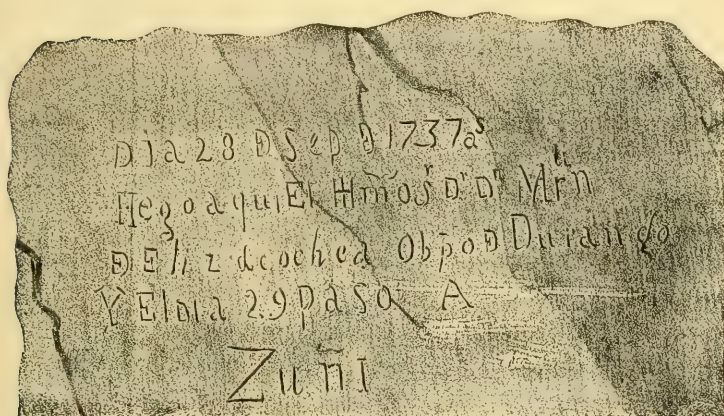 Dia 28 Đ Sep Đ 1737 aˢ
llego aqui El Illm̃o Sʳ Dʳ Dⁿ Mrñ
ĐElizdcochea Obp̃o Đ Durango
Y El Dia 29 paso A
Zuñi